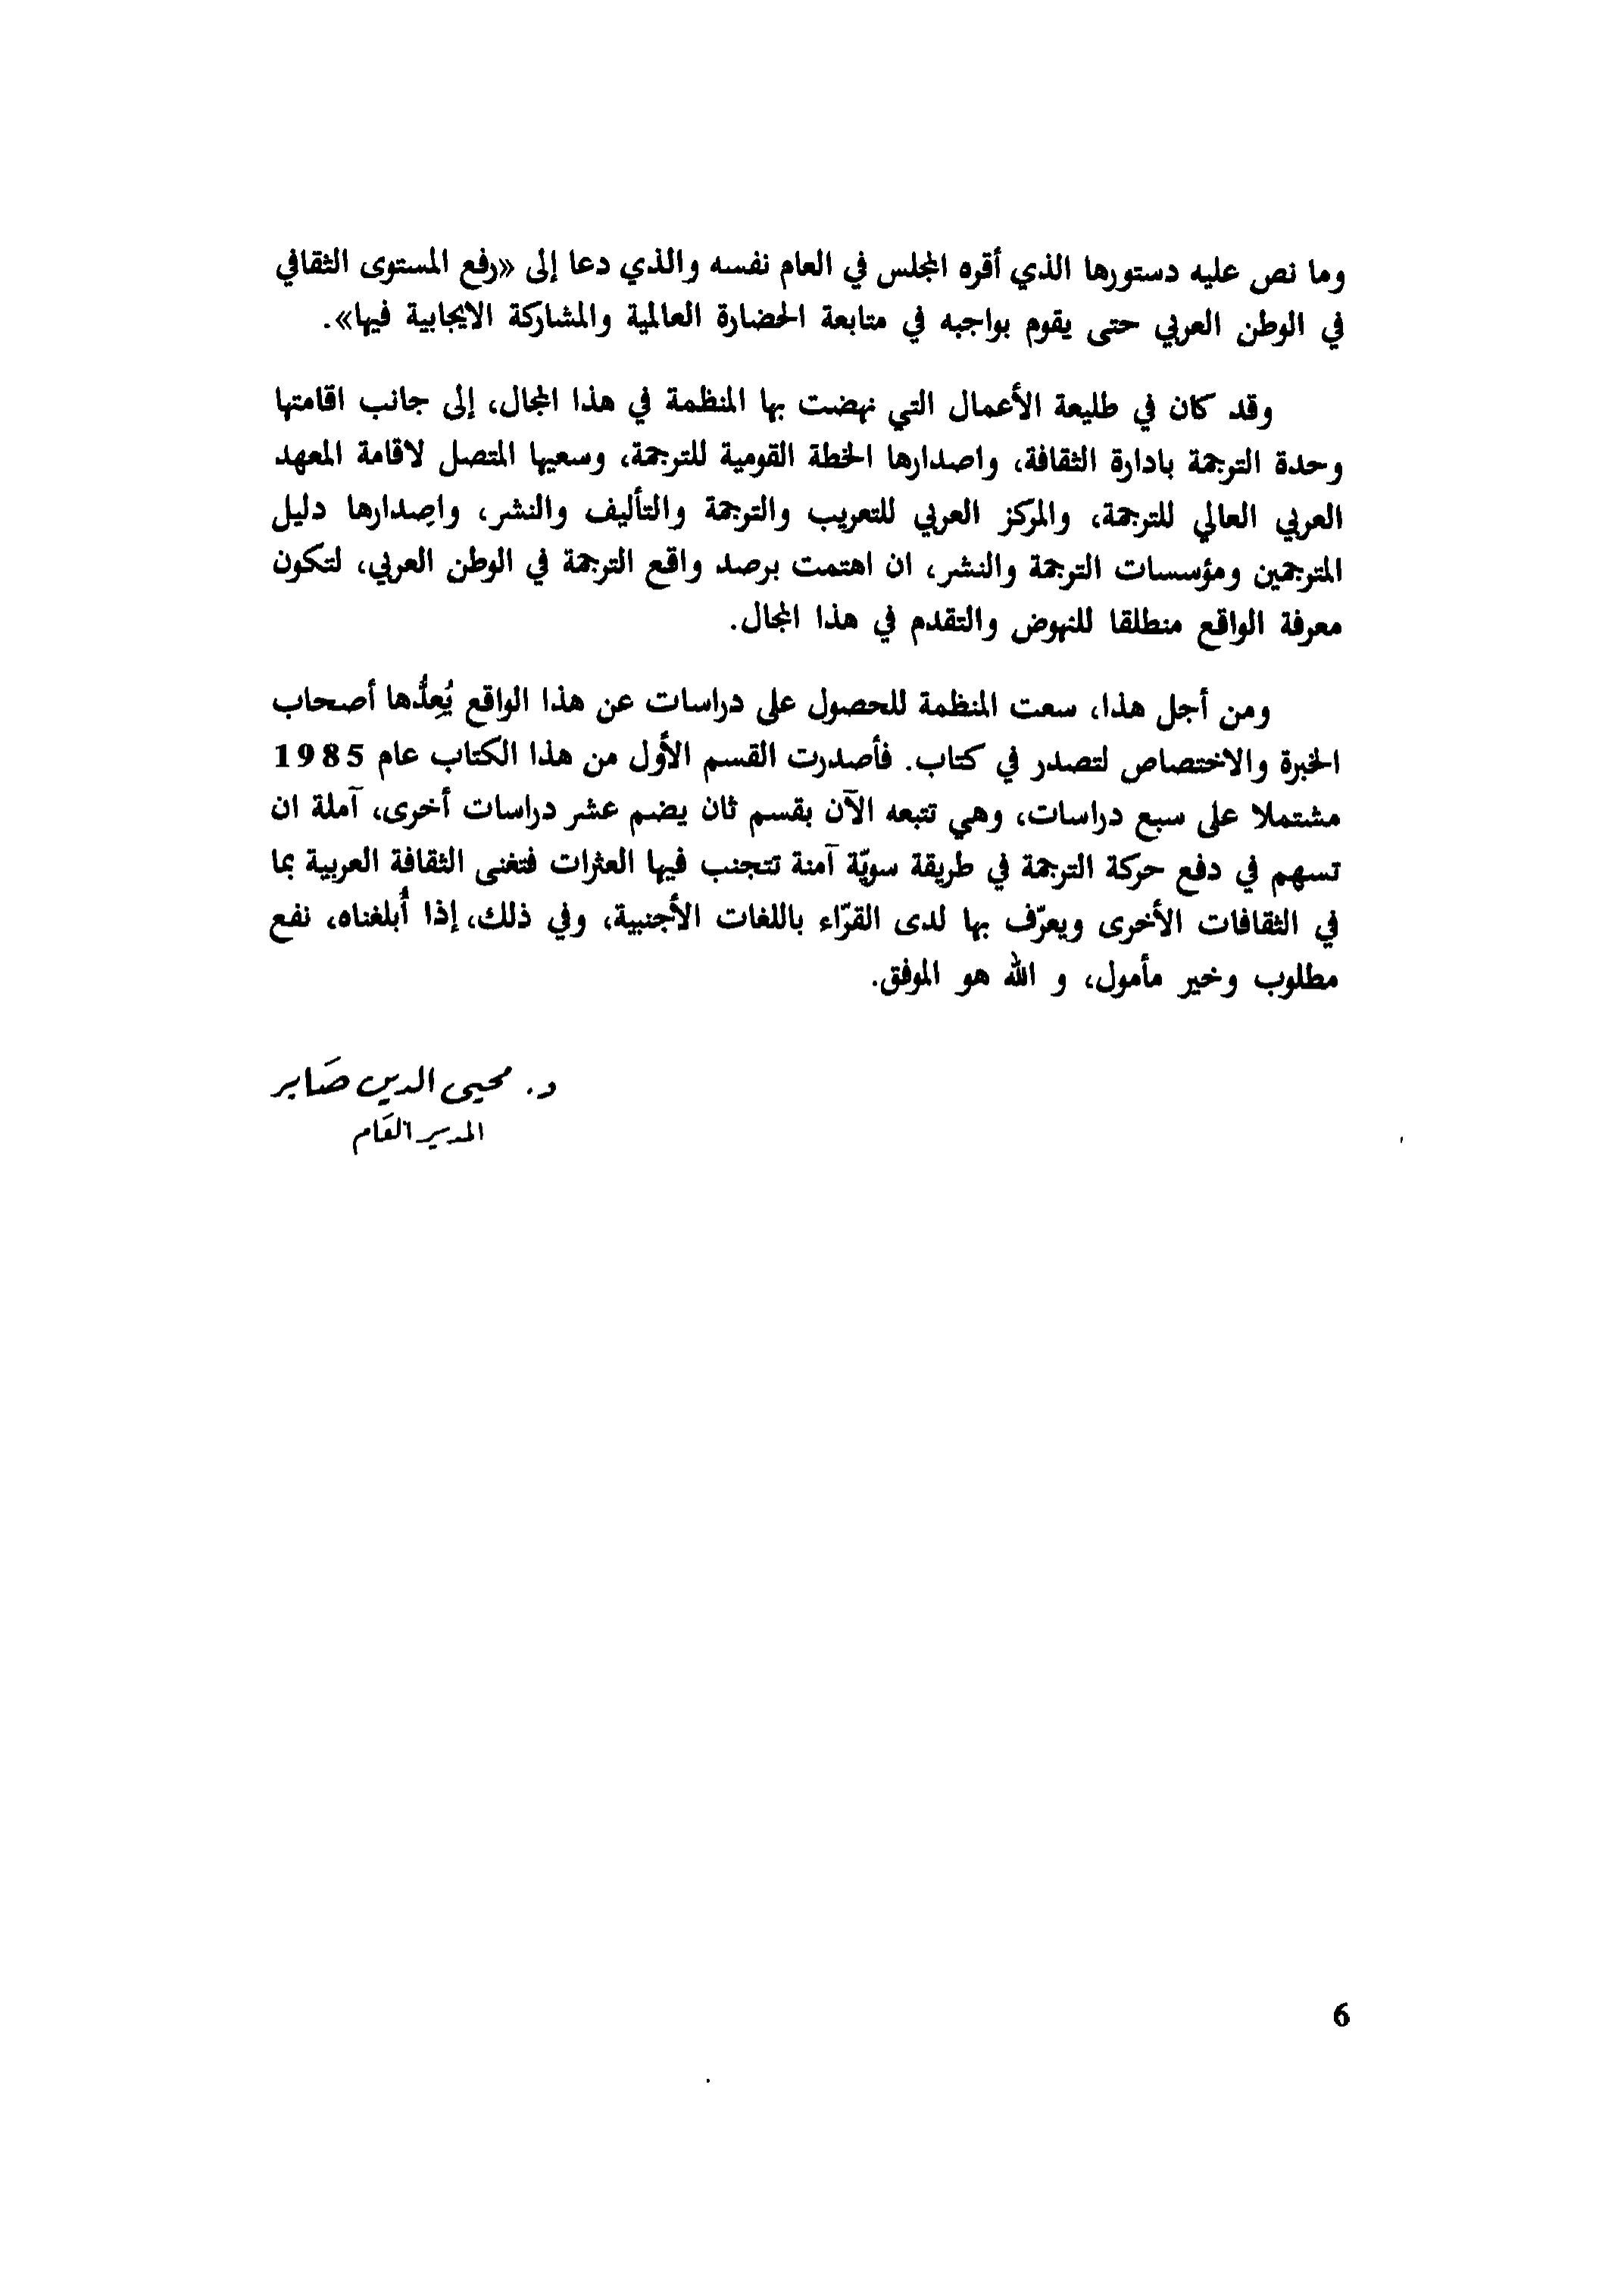 وما نص عليه دستورها الذي أقره المجلس في العام نفسه والذي دعا إلى «رفع المستوى الثقافي
في الوطن العربي حتى يقوم بواجبه في متابعة الحضارة العالمية والمشاركة الايجابية فيها».
وقد كان في طليعة الأعمال التي نهضت بها المنظمة في هذا المجال، إلى جانب اقامتها
وحدة الترجمة بادارة الثقافة، واصدارها الخطة القومية للترجمة، وسعيها المتصل لاقامة المعهد
العربي العالي للترجمة، والمركز العربي للتعريب والترجمة والتأليف والنشر، واصدارها دليل
المترجمين ومؤسسات الترجمة والنشر، ان اهتمت برصد واقع الترجمة في الوطن العربي، لتكون
معرفة الواقع منطلقا للنهوض والتقدم في هذا المجال.
ومن أجل هذا، سعت المنظمة للحصول على دراسات عن هذا الواقع يُعِدُّها أصحاب
الخبرة والاختصاص لتصدر في كتاب. فأصدرت القسم الأول من هذا الكتاب عام 1985
مشتملا على سبع دراسات، وهي تتبعه الآن بقسم ثان يضم عشر دراسات أخرى، آملة ان
تسهم في دفع حركة الترجمة في طريقة سويّة آمنة تتجنب فيها العثرات فتغنى الثقافة العربية بما
في الثقافات الأخرى ويعرّف بها لدى القرّاء باللغات الأجنبية، وفي ذلك، إذا أُبلغناه، نفع
مطلوب وخير مأمول، و الله هو الموفق.
د. محيى الدين صَابر
المدير العَام
6